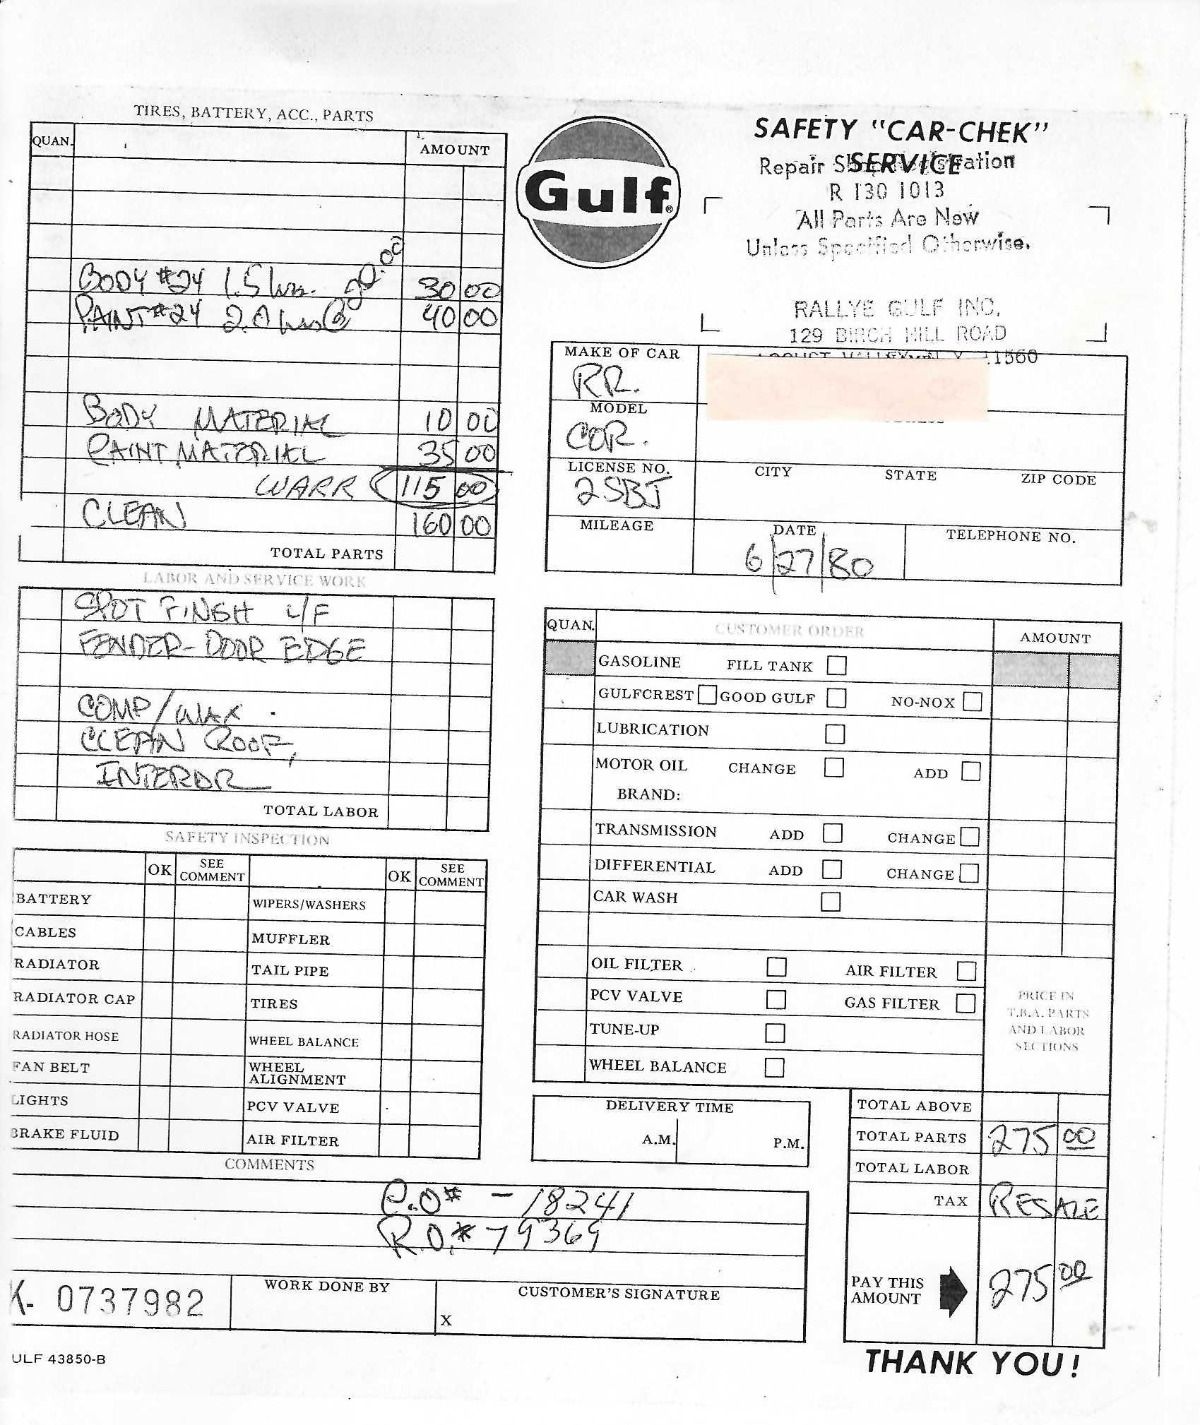 TIRES, BATTERY, ACC., PARTS
QUAN.
AMOUNT
BODY #24 1.5 hrs. @ 20.00 30 00
PAINT #24 2.0 hrs 40 00
BODY MATERIAL 10 00
PAINT MATERIAL 35 00
WARR 115 00
CLEAN 160 00
TOTAL PARTS
LABOR AND SERVICE WORK
SPOT FINSH L/F
FENDER-DOOR EDGE
COMP/WAX
CLEAN ROOF,
INTEROR
TOTAL LABOR
SAFETY INSPECTION
OK SEE COMMENT OK SEE COMMENT
BATTERY WIPERS/WASHERS
CABLES MUFFLER
RADIATOR TAIL PIPE
RADIATOR CAP TIRES
RADIATOR HOSE WHEEL BALANCE
FAN BELT WHEEL ALIGNMENT
LIGHTS PCV VALVE
BRAKE FLUID AIR FILTER
COMMENTS
P.O# - 18241
R.O.# 79369
K- 0737982
WORK DONE BY
CUSTOMER'S SIGNATURE
X
ULF 43850-B
Gulf®
SAFETY "CAR-CHEK"
SERVICE
Repair Shop Registration
R 130 1013
All Parts Are New
Unless Specified Otherwise.
RALLYE GULF INC.
129 BIRCH HILL ROAD
LOCUST VALLEY, N.Y. 11560
MAKE OF CAR
RR.
MODEL
COR.
LICENSE NO.
2SBJ
CITY STATE ZIP CODE
MILEAGE
DATE
6/27/80
TELEPHONE NO.
QUAN. CUSTOMER ORDER AMOUNT
GASOLINE FILL TANK
GULFCREST GOOD GULF NO-NOX
LUBRICATION
MOTOR OIL CHANGE ADD
BRAND:
TRANSMISSION ADD CHANGE
DIFFERENTIAL ADD CHANGE
CAR WASH
OIL FILTER AIR FILTER
PCV VALVE GAS FILTER
TUNE-UP
WHEEL BALANCE
PRICE IN
T.B.A. PARTS
AND LABOR
SECTIONS
DELIVERY TIME
A.M. P.M.
TOTAL ABOVE
TOTAL PARTS 275 00
TOTAL LABOR
TAX RESALE
PAY THIS
AMOUNT 275 00
THANK YOU!